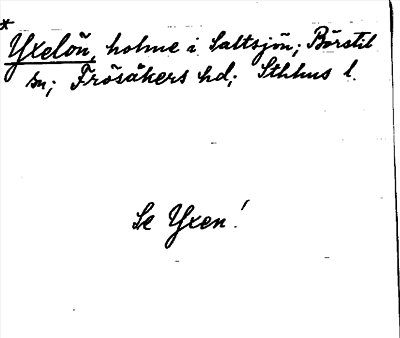 *
Yxelön, holme i Saltsjön; Börstil
sn; Frösåkers hd; Sthlms l.
Se Yxen!